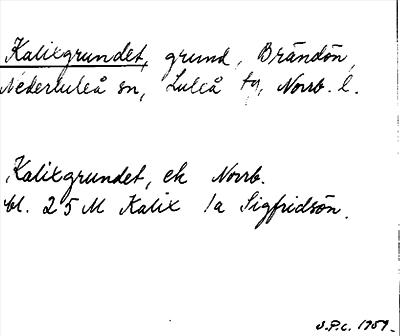 Kalixgrundet, grund, Brändön,
Nederluleå sn, Luleå tg, Norrb. l.
Kalixgrundet, ek Norrb.
bl. 25 M Kalix 1a Sigfridsön.
J.P.L. 1959.